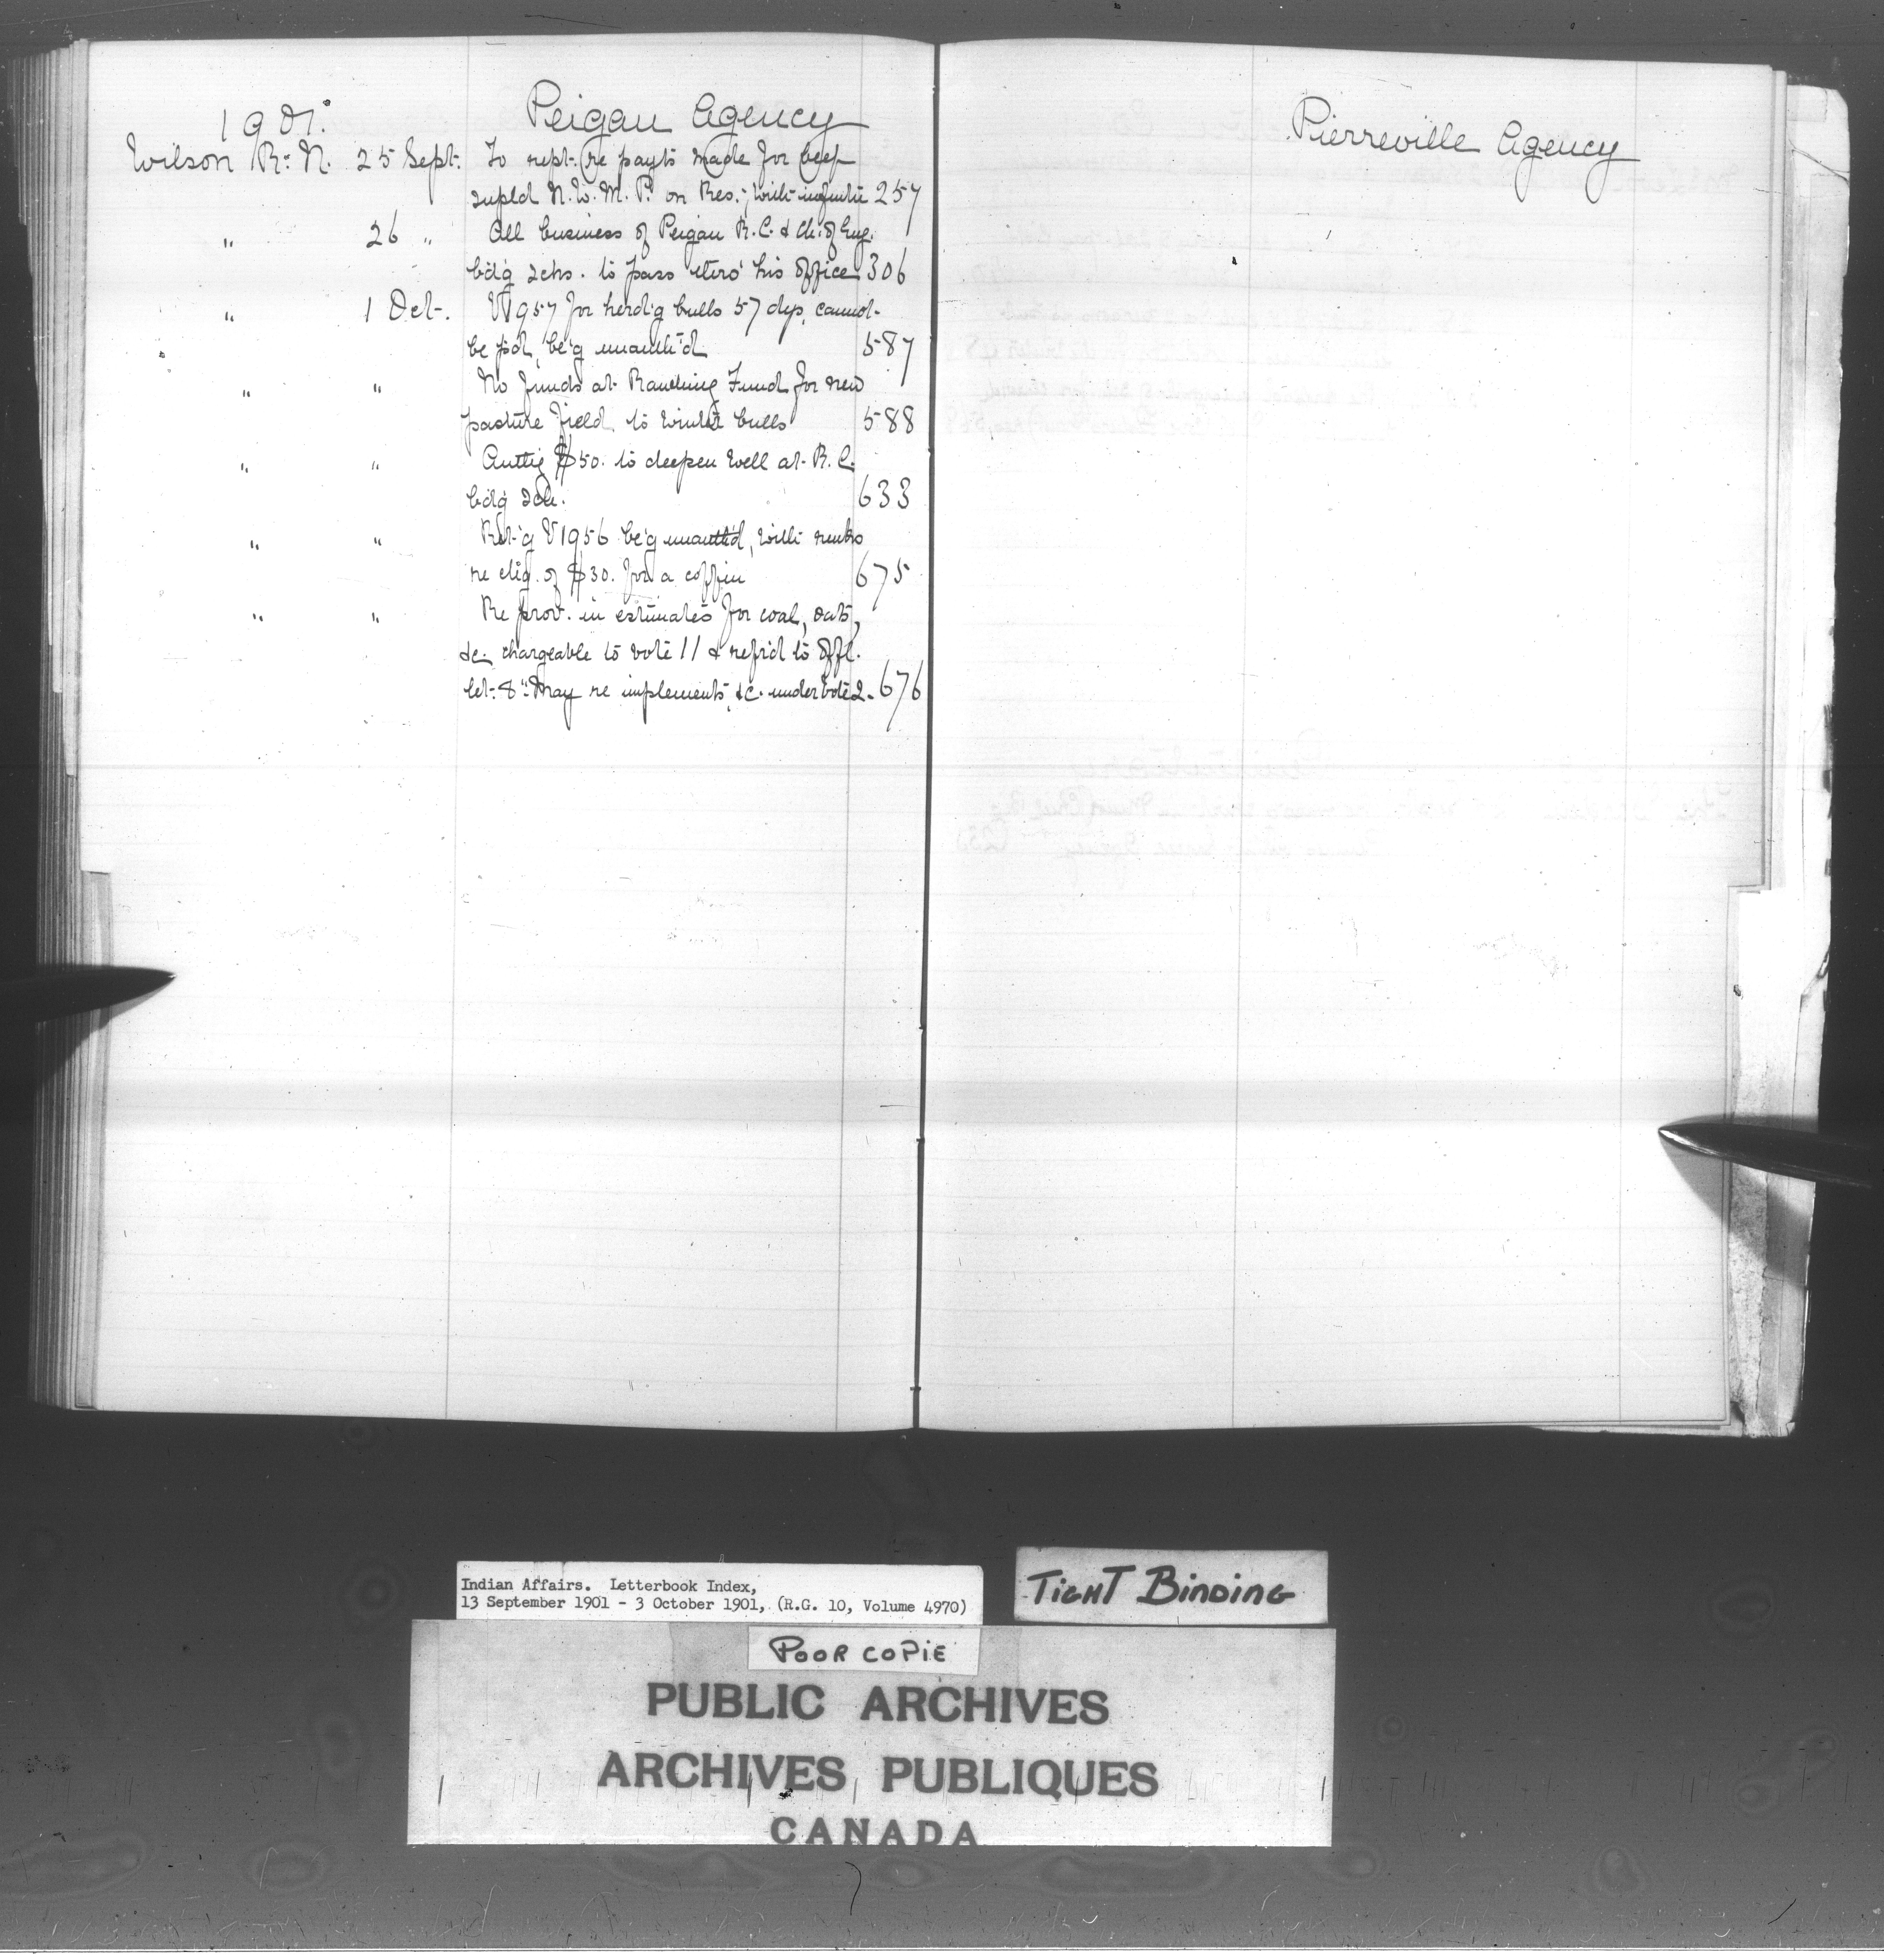 1901. Peigan Agency
Wilson R. N. 25 Sept. To rept. re payts made for beef
supld N. W. M. P. on Res.; with 257
" 26 " All business of Peigan R. C. & Ch. of Eng.
bdg schs. to pass thro' his office 306
" 1 Oct. V 1957 for herd'g bulls 57 dys, cannot
be pd, be'g unauth'd 587
" " No funds at Ranching Fund for new
pasture field, to winter bulls 588
" " Authg $50. to deepen well at R. C.
bdg sch. 633
" " Ret'g V 1956 be'g unauth'd, with remks
re chg. of $30. for a coffin 675
" " Re prov. in estimates for coal, oats,
&c. chargeable to vote 11 & refr'd to offl.
let. 8" May re implements, &c. under vote 2. 676
Pierreville Agency
Indian Affairs. Letterbook Index,
13 September 1901 - 3 October 1901, (R.G. 10, Volume 4970)
TIGHT BINDING
POOR COPIE
PUBLIC ARCHIVES
ARCHIVES PUBLIQUES
CANADA